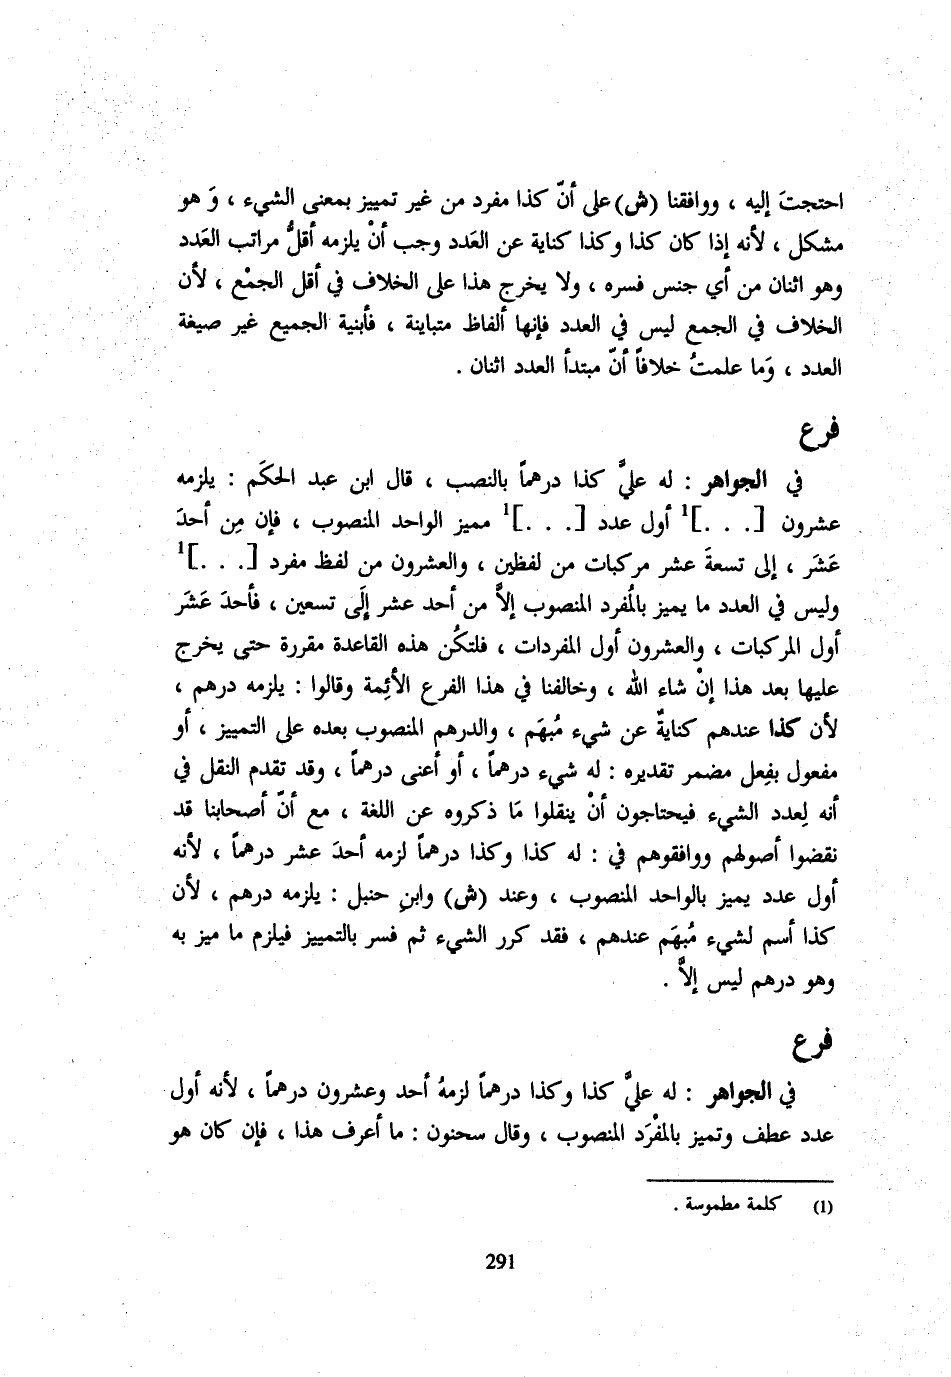 احتجتَ إليه ، ووافقنا (ش) على أنّ كذا مفرد من غير تمييز بمعنى الشيء ، وَ هو
مشكل ، لأنه إذا كان كذا وكذا كناية عن العَدد وجب أنْ يلزمه أقلُّ مراتب العَدد
وهو اثنان من أي جنس فسره ، ولا يخرج هذا على الخلاف في أقل الجمْع ، لأن
الخلاف في الجمع ليس في العدد فإنها ألفاظ متباينة ، فأبنية الجميع غير صيغة
العدد ، وَما علمتُ خلافاً أنّ مبتدأ العدد اثنان .
فرع
في الجواهر : له عليَّ كذا درهماً بالنصب ، قال ابن عبد الحكَم : يلزمه
عشرون [. . .]1 أول عدد [. . .]1 مميز الواحد المنصوب ، فإن مِن أحدَ
عَشَر ، إلى تسعةَ عشر مركبات من لفظين ، والعشرون من لفظ مفرد [. . .]1
وليس في العدد ما يميز بالُمفرد المنصوب إلاَّ من أحد عشر إلَى تسعين ، فأحدَ عَشَر
أول المركبات ، والعشرون أول المفردات ، فلتكُن هذه القاعدة مقررة حتى يخرج
عليها بعد هذا إنْ شاء الله ، وخالفنا في هذا الفرع الأئِمة وقالوا : يلزمه درهم ،
لأن كذا عندهم كنايةٌ عن شيء مُبهَم ، والدرهم المنصوب بعده على التمييز ، أو
مفعول بفِعل مضمر تقديره : له شيء درهماً ، أو أعنى درهماً ، وقد تقدم النقل في
أنه لِعدد الشيء فيحتاجون أنْ ينقلوا مَا ذكروه عن اللغة ، مع أنّ أصحابنا قد
نقضوا أصولهم ووافقوهم في : له كذا وكذا درهماً لزمه أحدَ عشر درهماً ، لأنه
أول عدد يميز بالواحد المنصوب ، وعند (ش) وابنِ حنبل : يلزمه درهم ، لأن
كذا أسم لشيء مُبهَم عندهم ، فقد كرر الشيء ثم فسر بالتمييز فيلزم ما ميز به
وهو درهم ليس إلاَّ .
فرع
في الجواهر : له عليَّ كذا وكذا درهماً لزمهُ أحد وعشرون درهماً ، لأنه أول
عدد عطف وتميز بالمفْرَد المنصوب ، وقال سحنون : ما أعرف هذا ، فإن كان هو
(1) كلمة مطموسة .
291